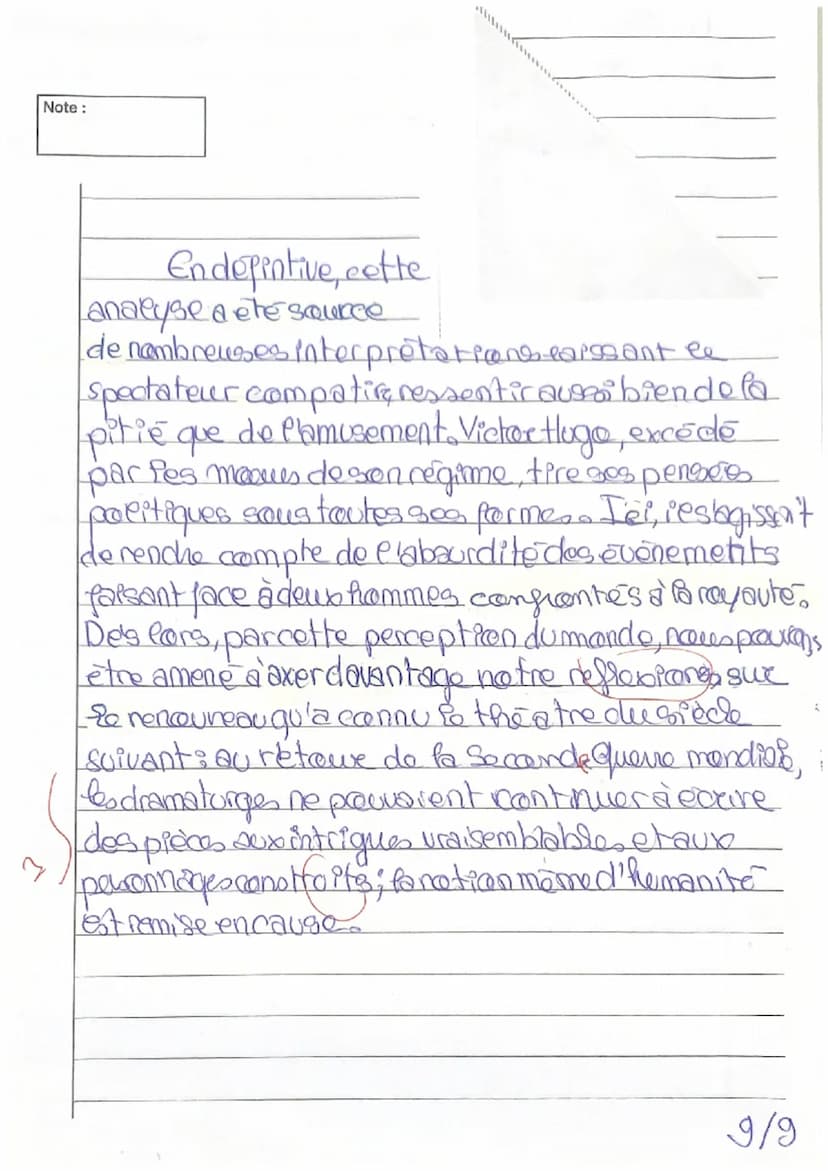 Note :
En défintive, cette
analyse a été source
de nombreuses interprétations laissant le
spectateur compatir, ressentir aussi bien de la
pitié que de l'amusement. Victor Hugo, excédé
par les maques de son régime, tire ses pensées
politiques sous toutes ses formes. Ici, il s'agissait
de rendre compte de l'absurdité des évènements
faisant face à deux hommes confrontés à la royauté.
Dès lors, par cette perception du monde, nous pouvons
être amené à axer davantage notre réflexions sur
le renouveau qu'a connu le théâtre du siècle
suivant : au retour de la Seconde Guerre mondiale,
les dramaturges ne pouvaient continuer à écrire
des pièces aux intrigues vraisemblables et aux
personnages ; la notion même d'humanité
est remise en cause.
9/9